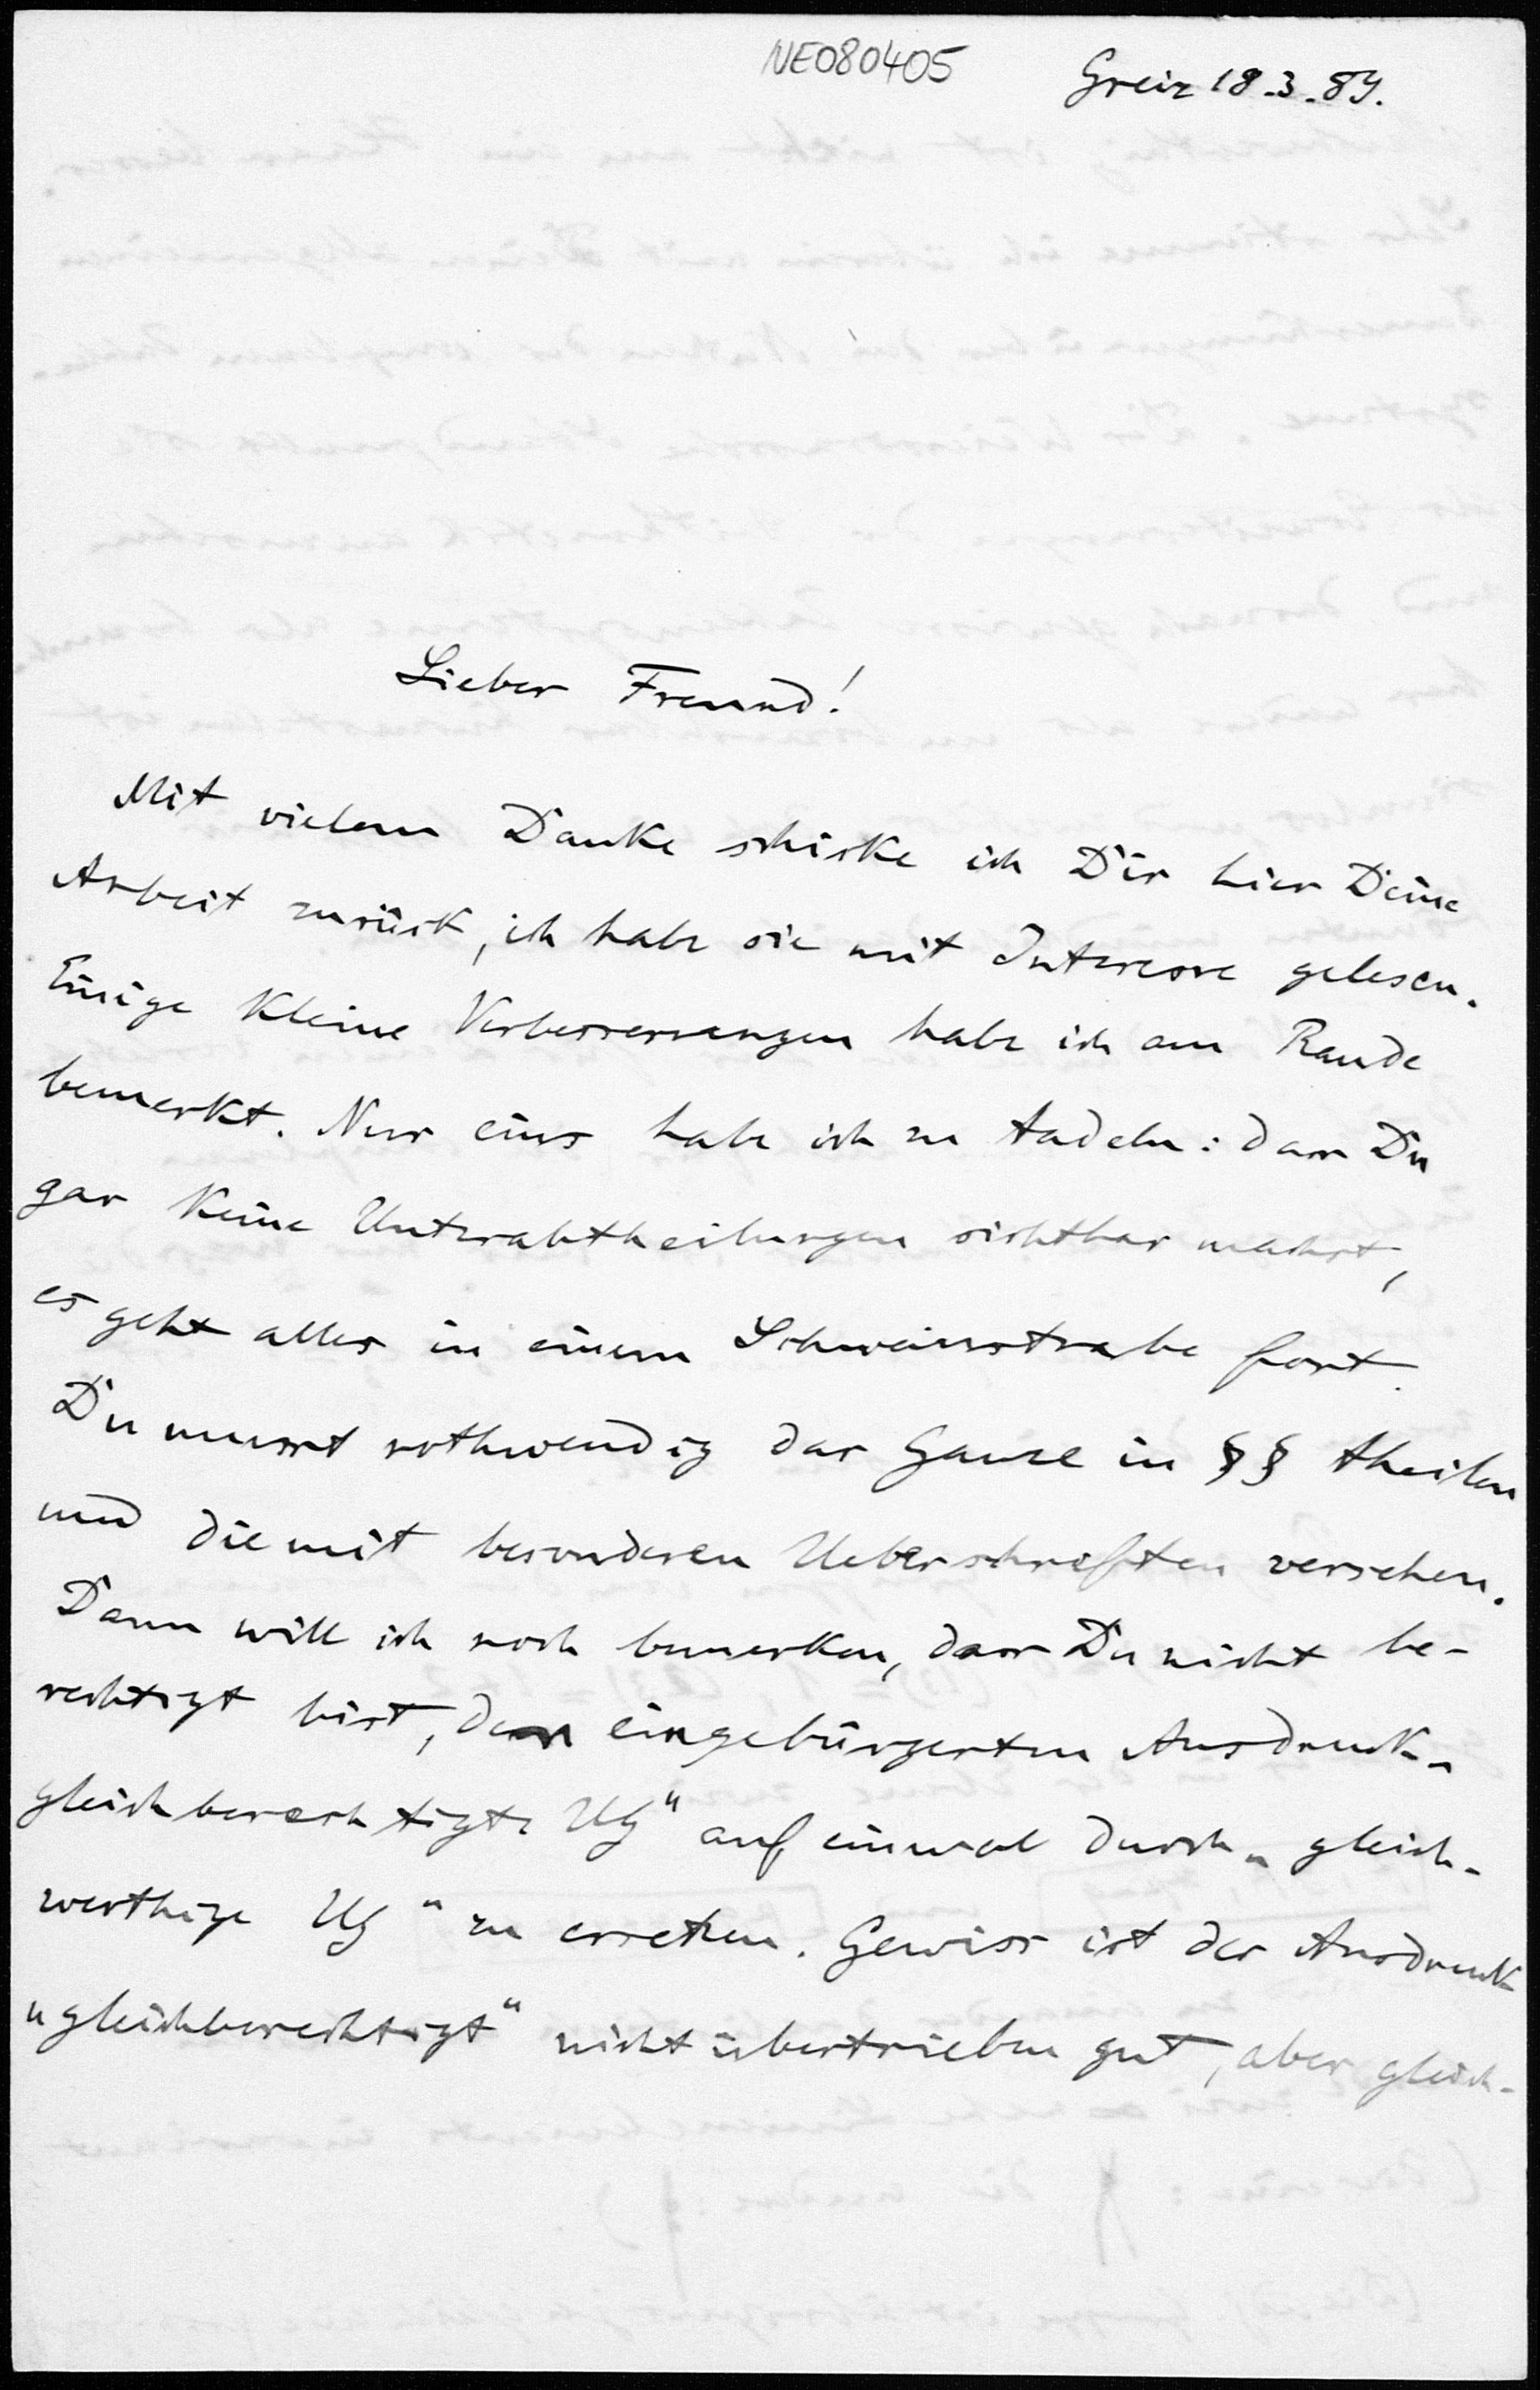 NE080405
Greiz 18.3.89.
Lieber Freund!
Mit vielem Danke schicke ich Dir hier Deine
Arbeit zurück, ich habe sie mit Interesse gelesen.
Einige kleine Verbesserungen habe ich am Rande
bemerkt. Nur eins habe ich zu tadeln: dass Du
gar keine Unterabtheilungen sichtbar machst,
es geht alles in einem Schweinstrabe fort.
Du musst nothwendig das Ganze in §§ theilen
und die mit besonderen Ueberschriften versehen.
Dann will ich noch bemerken, dass Du nicht be-
rechtigt bist, den eingebürgerten Ausdruck „
gleichberechtigte UG“ auf einmal durch „gleich-
werthige UG“ zu ersetzen. Gewiss ist der Ausdruck
„gleichberechtigt“ nicht übertrieben gut, aber gleich-